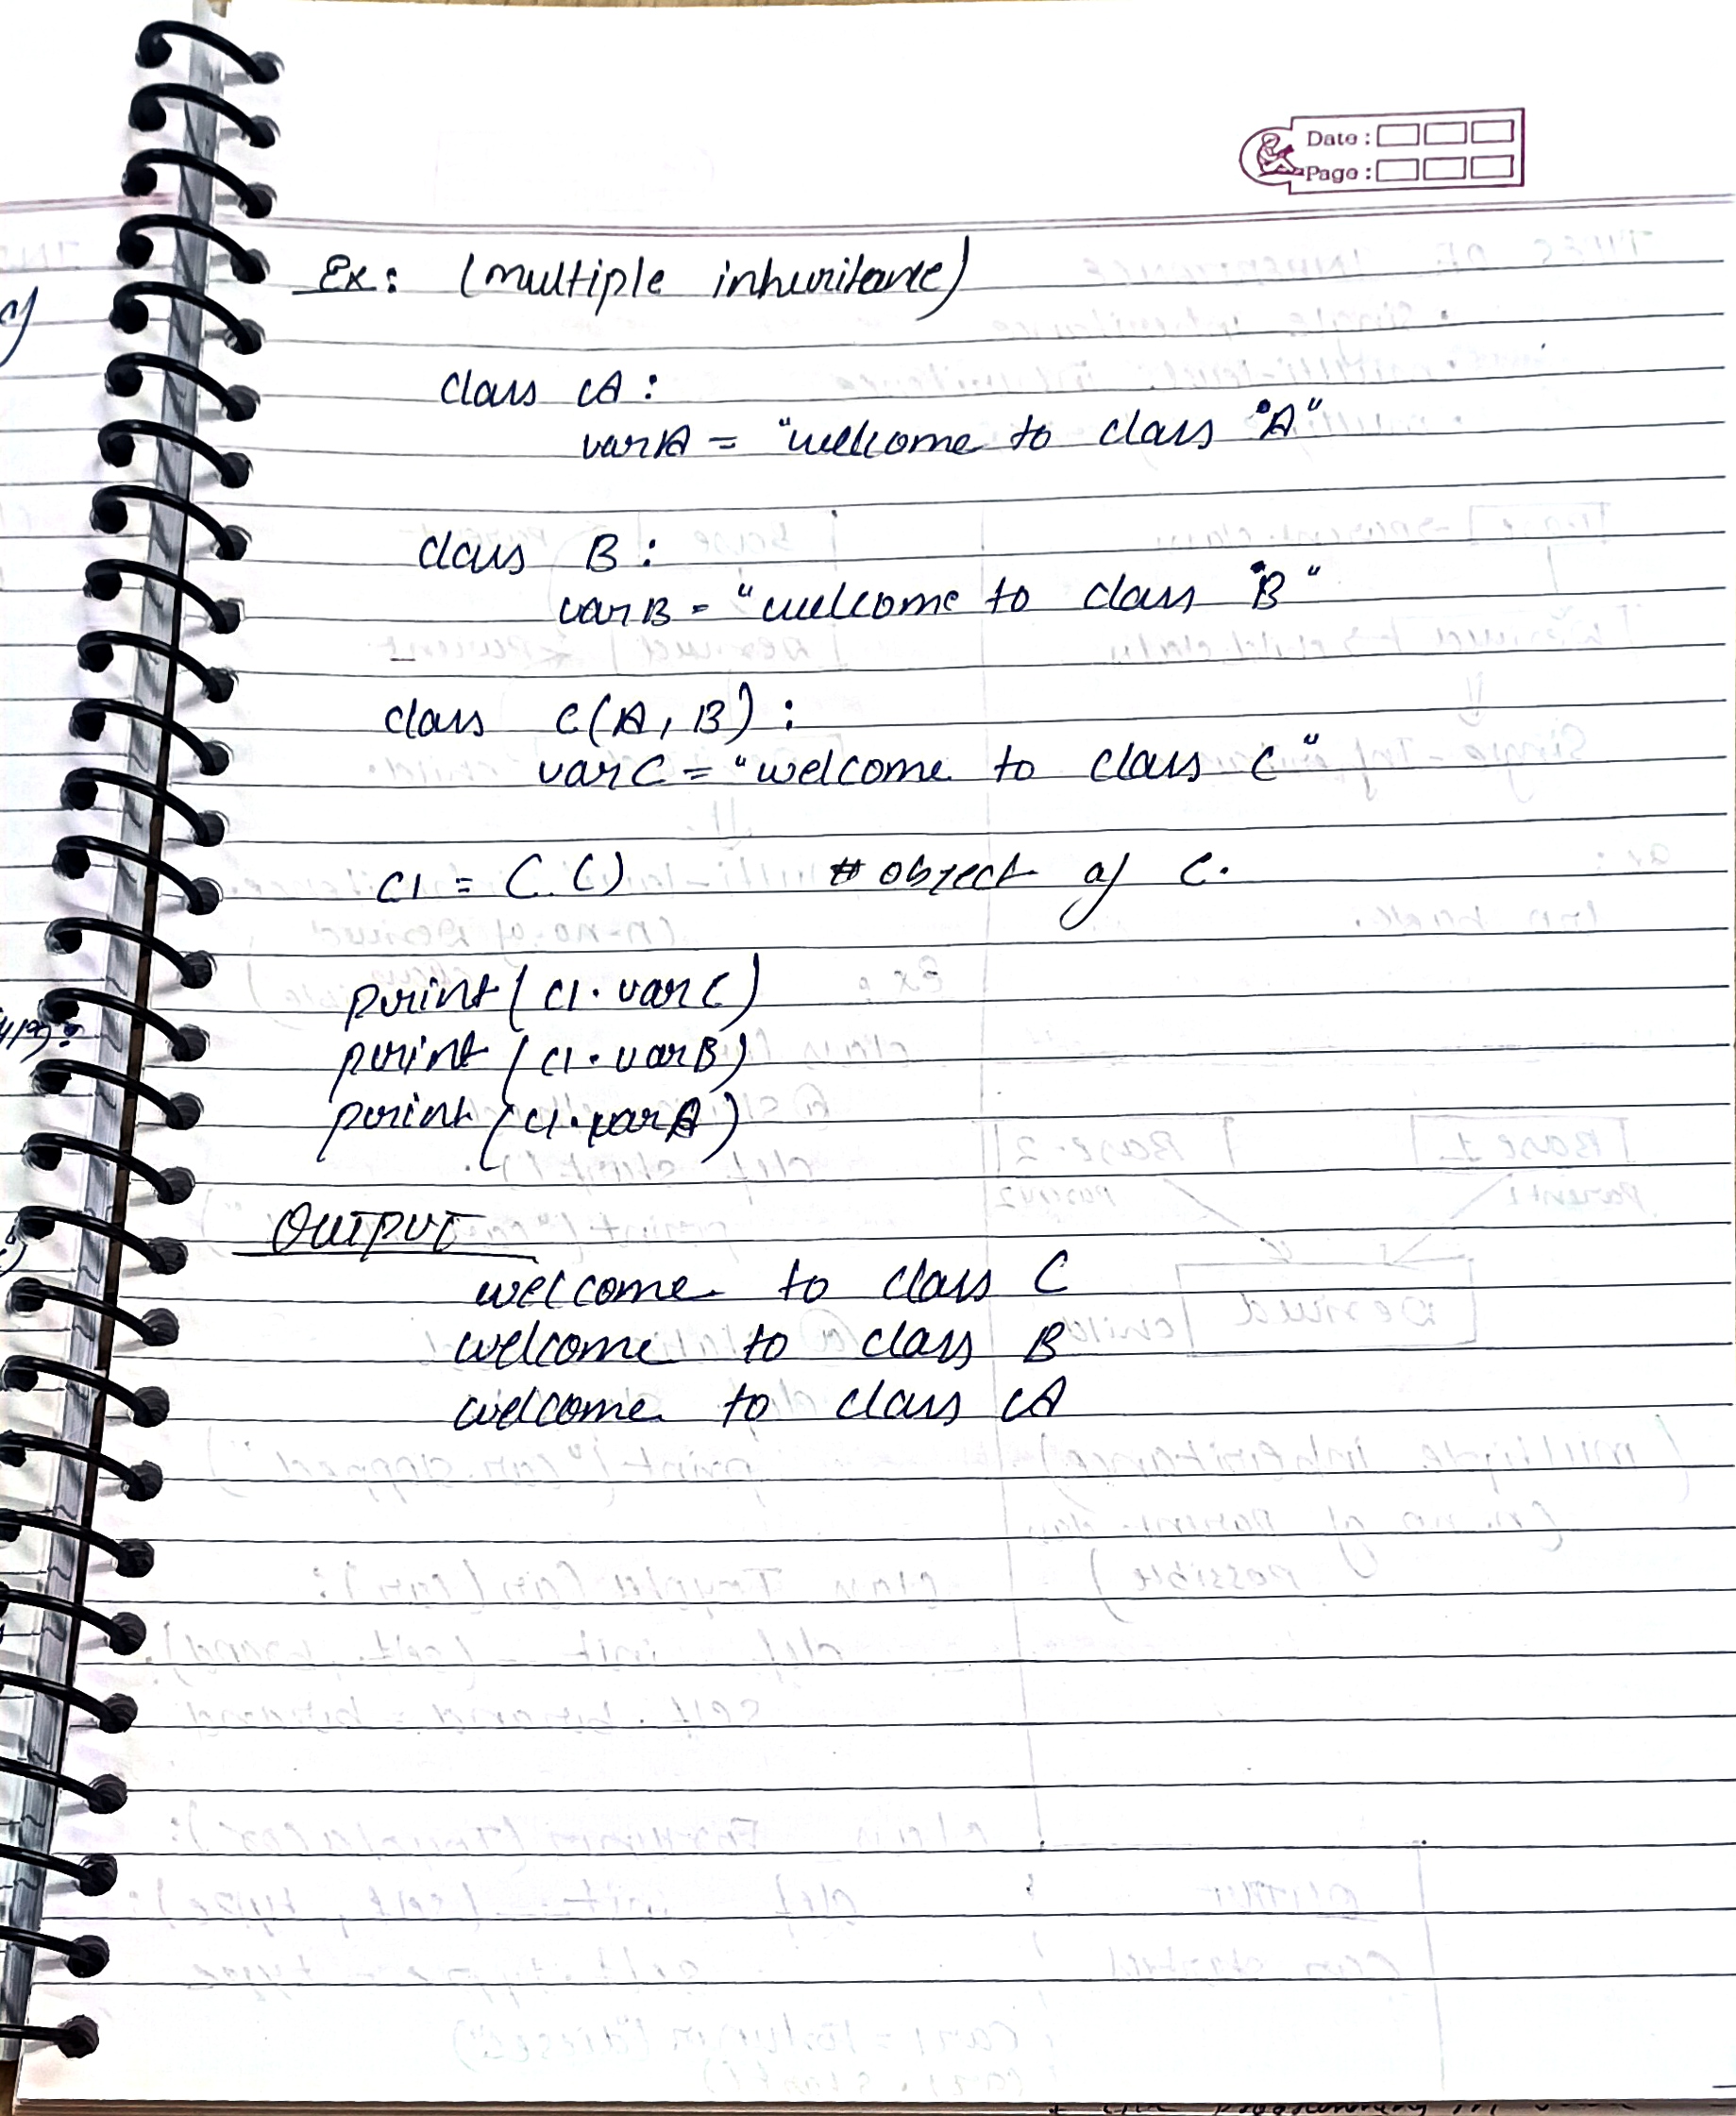 Date :
Page :
Ex: (multiple inheritance)
class A:
varA = "welcome to class A"
class B:
varB = "welcome to class B"
class C(A, B):
varC = "welcome to class C"
C1 = C()    # object of C.
print(C1.varC)
print(C1.varB)
print(C1.varA)
OUTPUT
welcome to class C
welcome to class B
welcome to class A